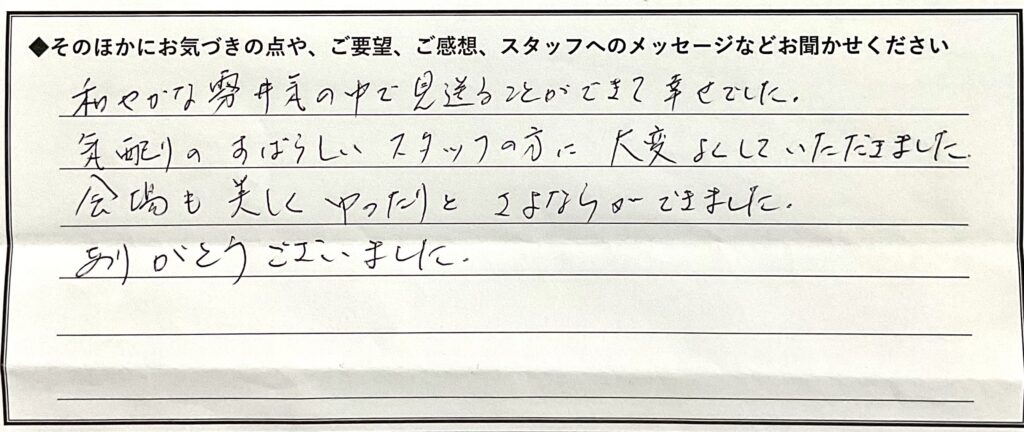 ◆そのほかにお気づきの点や、ご要望、ご感想、スタッフへのメッセージなどお聞かせください
和やかな雰井気の中で見送ることができて幸せでした。
気配りのすばらしいスタッフの方に大変よくしていただきました。
会場も美しくゆったりとさよならができました。
ありがとうございました。